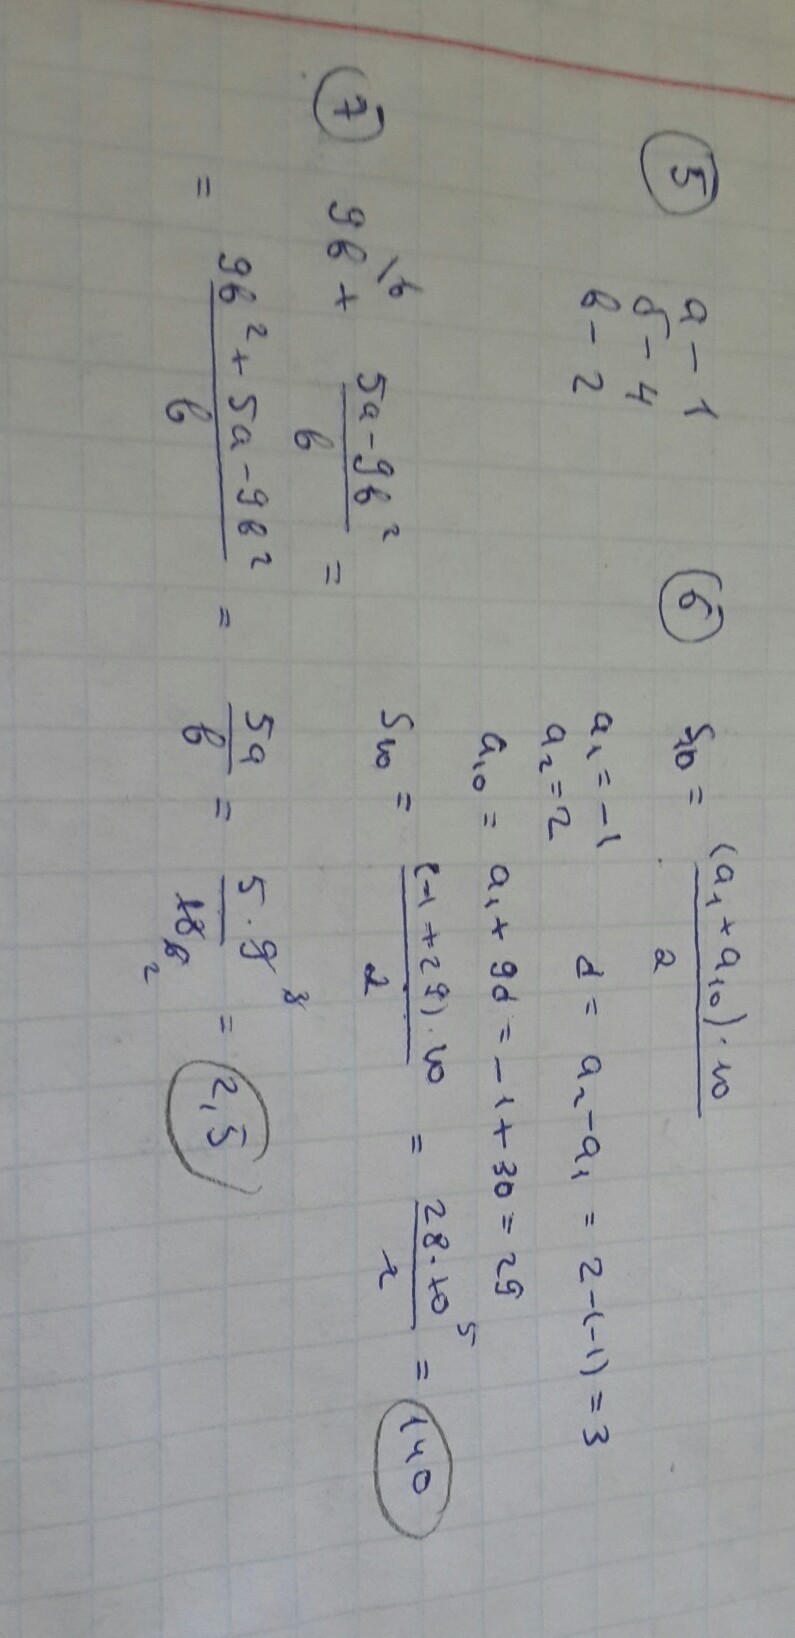 ⑤ а – 1
б – 4
в – 2
⑥ S₁₀ = (a₁ + a₁₀) · 10 / 2
a₁ = –1
a₂ = 2 d = a₂ – a₁ = 2 – (–1) = 3
a₁₀ = a₁ + 9d = –1 + 30 = 29
S₁₀ = (–1 + 29) · 10 / 2 = 28 · 10 ⁵ / 2 = 140
⑦ 9b \b + 5a – 9b² / b =
= 9b² + 5a – 9b² / b = 5a / b = 5 · 9 / 18 ₂ = 2,5